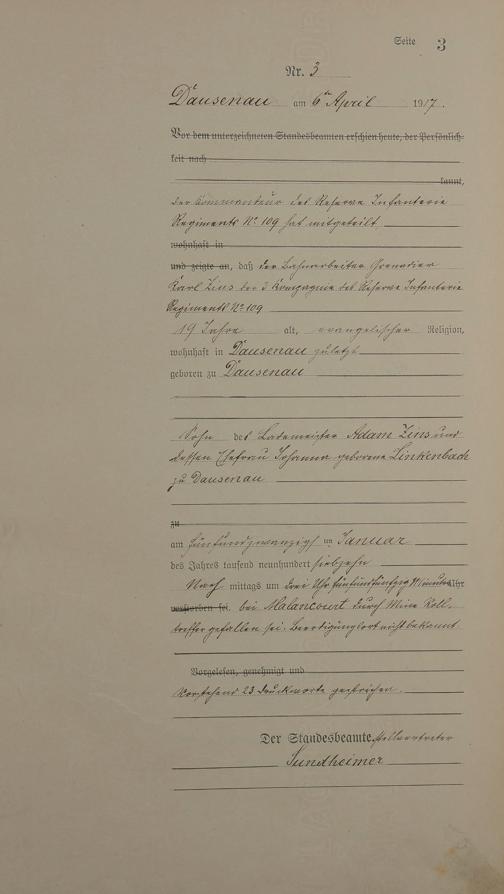 Seite 3
Nr. 3
Dausenau am 6ten April 1917.
Vor dem unterzeichneten Standesbeamten erschien heute, der Persönlich-
keit nach
kannt,
der Kommandeur des Reserve Infanterie
Regiments No 109 hat mitgeteilt
wohnhaft in
und zeigte an, daß der Bahnarbeiter Grenadier
Karl Zins der 3 Kompagnie des Reserve Infanterie
Regiments No 109
19 Jahre alt, evangelischer Religion,
wohnhaft in Dausenau zuletzt
geboren zu Dausenau
Sohn des Lademeister Adam Zins und
dessen Ehefrau Johanna geborene Linkenbach
zu Dausenau
zu
am fünfundzwanzigsten Januar
des Jahres tausend neunhundert siebzehn
Nach mittags um drei Uhr fünfundfünfzig Minuten Uhr
verstorben sei. bei Malancourt durch Mine Voll-
treffer gefallen sei. Beerdigungsort nicht bekannt
Vorgelesen, genehmigt und
Vorstehend 23 Druckworte gestrichen.
Der Standesbeamte. stellvertreter
Sundheimer